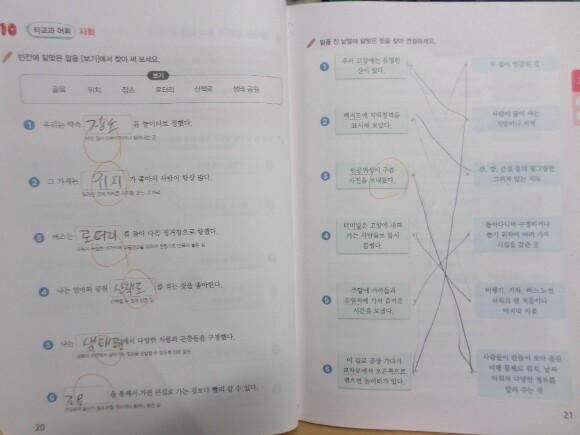 10 타교과 어휘 사회
빈칸에 알맞은 말을 [보기]에서 찾아 써 보세요.
보기
골목 위치 장소 로터리 산책로 생태 공원
1 우리는 약속 장소 를 놀이터로 정했다.
2 그 가게는 위치 가 좋아서 사람이 항상 많다.
3 버스는 로터리 를 돌아 다음 정거장으로 향했다.
4 나는 엄마와 공원 산책로 를 걷는 것을 좋아한다.
5 나는 에서 다양한 식물과 곤충들을 구경했다.
6 을 통해서 가면 큰길로 가는 것보다 빨리 갈 수 있다.
20
밑줄 친 낱말에 알맞은 뜻을 찾아 연결하세요.
1 우리 고장에는 유명한
산이 있다.
두 길이 엇갈린 곳
2 백지도에 지하철역을
표시해 보았다.
사람이 많이 사는
지방이나 지역
3 인공위성이 구름
사진을 보내왔다.
산, 강, 큰길 등의 밑그림만
그려져 있는 지도
4 터미널은 고향에 내려
가는 사람들로 몹시
붐볐다.
돌아다니며 구경하거나
놀기 위하여 여러 가지
시설을 갖춘 곳
5 주말에 가족들과
유원지에 가서 즐거운
시간을 보냈다.
비행기, 기차, 버스 노선
따위의 맨 처음이나
마지막 지점
6 이 길로 곧장 가다가
교차로에서 오른쪽으로
꺾으면 놀이터가 있다.
사람들이 만들어 쏘아 올린
비행 물체로 위치, 날씨
따위의 다양한 정보를
알려 주는 것
21